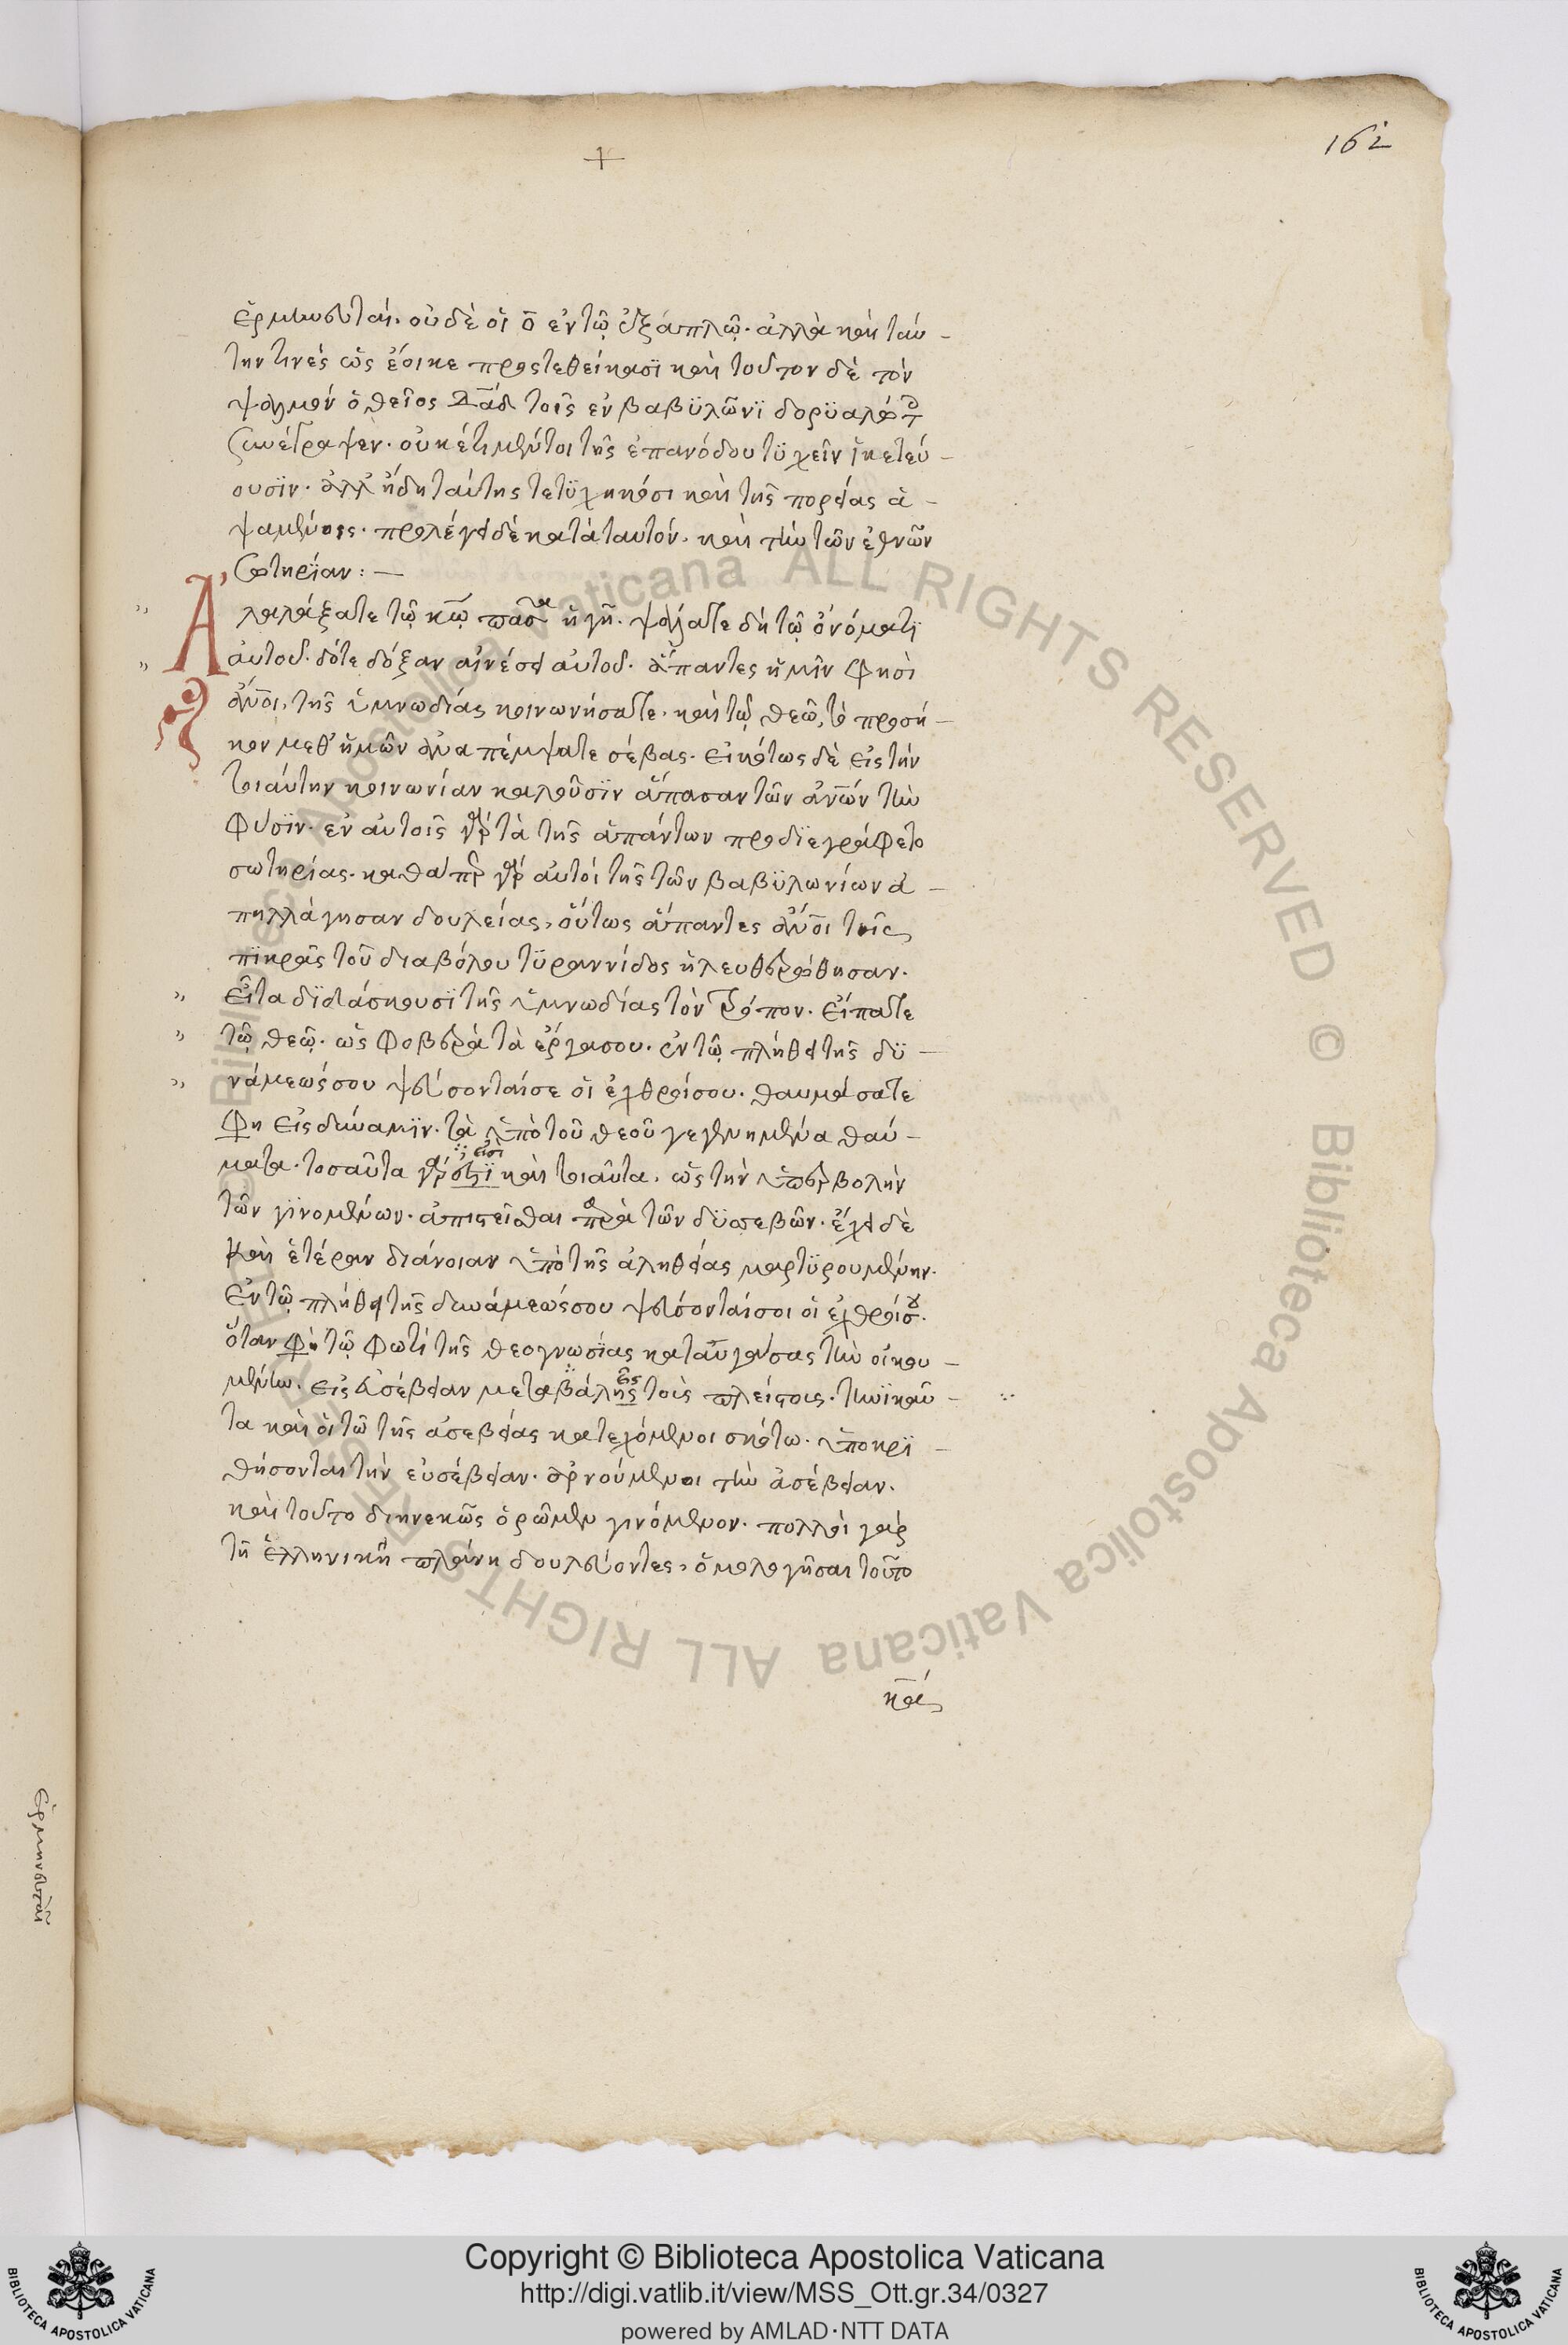 162
+
ἑρμηνευταί. οὐδὲ οἱ ο̄ ἐν τῶ ἑξαπλῶ. ἀλλὰ καὶ ταύ-
την τινὲς ὡς ἔοικε προστεθείκασϊ καὶ τοῦτον δὲ τὸν
ψαλμὸν ὁ θεῖος δᾱδ τοῖς ἐν βαβϋλῶνϊ δορϋαλώτ
συνέγραψεν. οὐκέτι μέντοι τῆς ἐπανόδου τϋχεῖν ἱκετεύ-
ουσϊν. ἀλλ' ἤδη ταύτης τετϋχηκόσι καὶ τῆς πορείας ἁ-
ψαμένοις. προλέγει δὲ κατὰ ταυτόν. καὶ τὴν τῶν ἐθνῶν
σωτηρίαν: —
Ἀλαλάξατε τῶ κ̄ω πᾶσα ἡ γῆ. ψάλατε δὴ τῶ ὀνόματϊ
αὐτοῦ. δότε δόξαν αἰνέσει αὐτοῦ. ἅπαντες ἡμῖν φησὶ
ἄν̄οι, τῆς ὑμνωδίας κοινωνήσατε. καὶ τῶ θεῶ, τὸ προσή-
κον μεθ' ἡμῶν ἀναπέμψατε σέβας. εἰκότως δὲ εἰς τὴν
τοιαύτην κοινωνίαν καλοῦσϊν ἅπασαν τῶν ἀν̄ων τὴν
φύσϊν. ἐν αὐτοῖς γὰρ τὰ τῆς ἁπάντων προδϊεγράφετο
σωτηρίας. καθάπερ γὰρ αὐτοὶ τῆς τῶν βαβϋλωνίων ἀ-
πηλλάγησαν δουλείας, οὕτως ἅπαντες ἄν̄οι τῆς
πϊκρᾶς τοῦ διαβόλου τϋραννίδος ἠλευθερώθησαν.
εἶτα δϊδάσκουσϊ τῆς ὑμνωδίας τὸν τρόπον. εἴπατε
τῶ θεῶ. ὡς φοβερὰ τὰ ἔργα σου. ἐν τῶ πλήθει τῆς δϋ-
νάμεώς σου ψεύσονταί σε οἱ ἐχθροί σου. θαυμάσατε
φη εἰς δύναμϊν. τὰ ὑπὸ τοῦ θεοῦ γεγενημένα θαύ-
εἰσὶ
ματα. τοσαῦτα γάρ ἐστϊ καὶ τοιαῦτα. ὡς τὴν ὑπερβολὴν
τῶν γϊνομένων. ἀπιστεῖσθαι παρὰ τῶν δϋσσεβῶν. ἔχει δὲ
καὶ ἑτέραν διάνοιαν ὑπὸ τῆς ἀληθείας μαρτϋρουμένην.
ἐν τῶ πλήθει τῆς δυνάμεώς σου ψεύσονταί σοι οἱ ἐχθροί σου.
ὅταν φὴ τῶ φωτὶ τῆς θεογνωσίας καταυγάσας τὴν οἰκου-
εῖς
μένην. εἰς εὐσέβειαν μεταβάλης τοὺς πλείστους. τηνϊκαῦ-
τα καὶ οἱ τῶ τῆς ἀσεβείας κατεχόμενοι σκότω. ὑποκρϊ-
θήσονται τὴν εὐσέβειαν. ἀρνούμενοι τὴν ἀσέβειαν.
καὶ τοῦτο διηνεκῶς ὁρῶμεν γινόμενον. πολλοὶ γὰρ
τῆ ἑλληνικῆ πλάνη δουλεύοντες, ὁμολογῆσαι τοῦτο
ἑρμηνευταὶ
Copyright © Biblioteca Apostolica Vaticana
http://digi.vatlib.it/view/MSS_Ott.gr.34/0327
powered by AMLAD·NTT DATA
BIBLIOTECA APOSTOLICA VATICANA
BIBLIOTECA APOSTOLICA VATICANA
© Biblioteca Apostolica Vaticana ALL RIGHTS RESERVED © Biblioteca Apostolica Vaticana ALL RIGHTS RESERVED